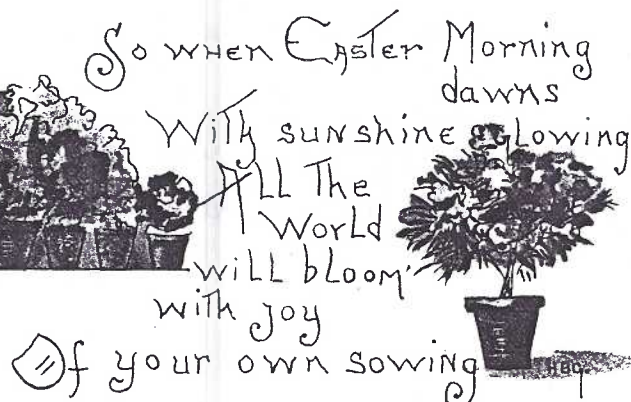 So when Easter Morning
dawns
With sunshine glowing
All The
World
will bloom
with joy
Of your own sowing